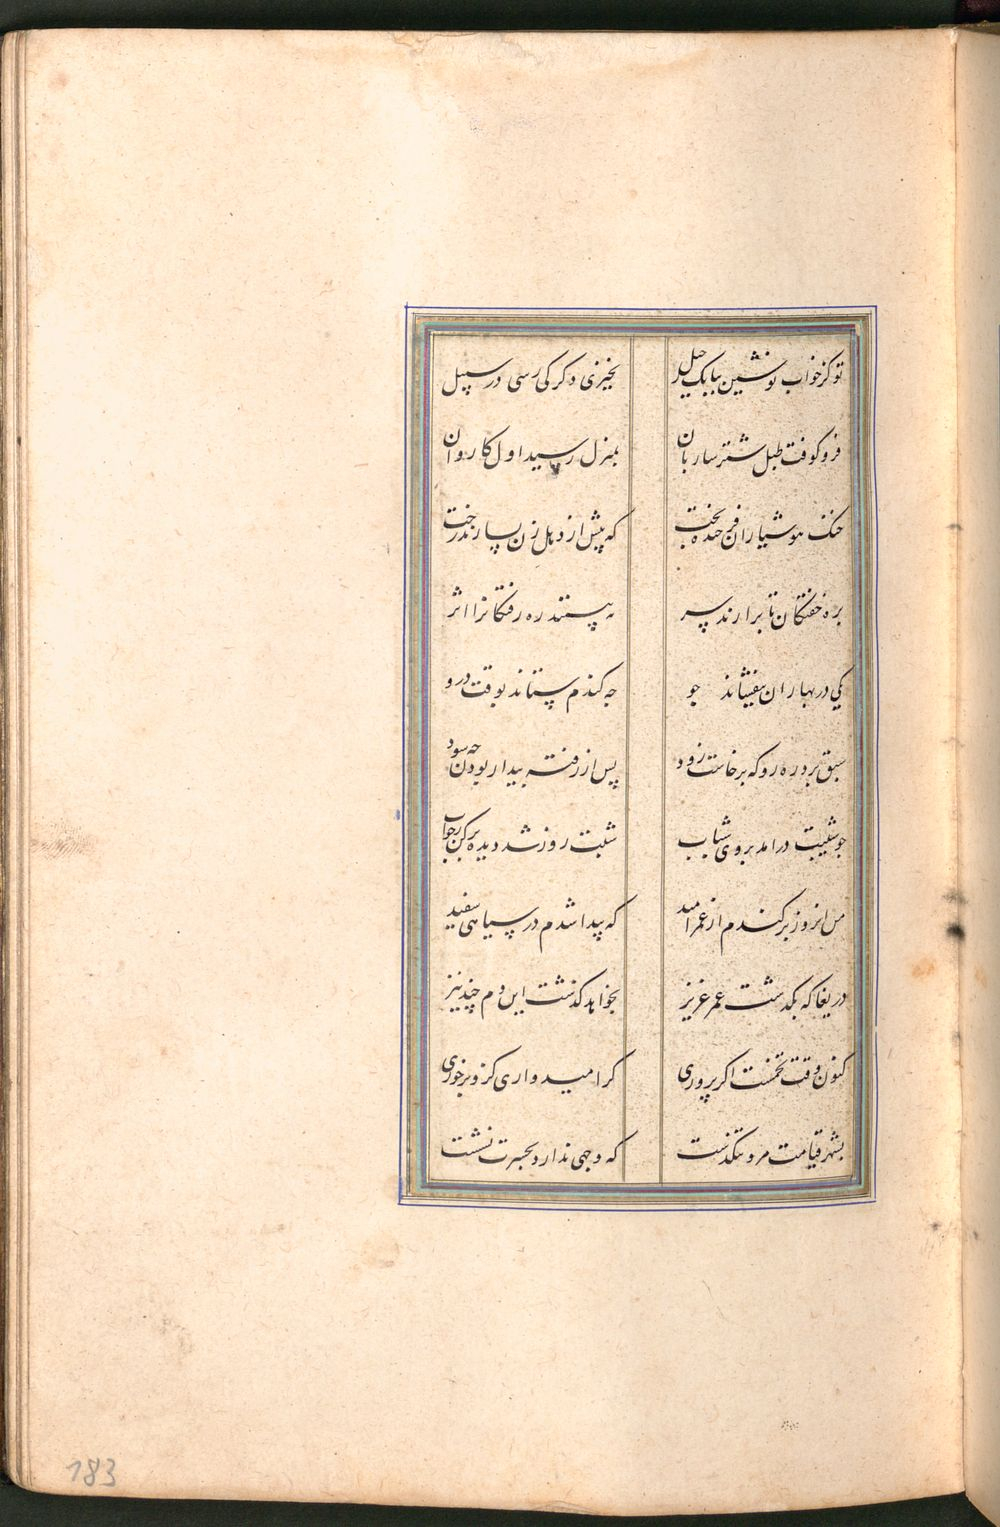 توکز خواب نوشین ببانک رحیل نخیزی دکر کی رسی در سبیل
فروکوفت طبل شتر ساربان بمنزل رسید اول کاروان
خنک هوشیاران فرخنده بخت که پیش از دهل زن بسازند رخت
بره خفتکان تا برارند سر نه بینند ره رفتکانرا اثر
یکی در بهاران بیفشاند جو چه کندم ستاند بوقت درو
سبق برد ره رو که برخاست زود پس از رفتن بیدار بودن چه سود
چو شیبت درامد بروی شباب شبت روز شد دیده برکن زخواب
من انروز برکندم از عمر امید که پیدا شدم در سیاهی سفید
دریغا که بکذشت عمر عزیز بخواهد کذشت این دم چند نیز
کنون وقت تخمست اکر پروری کرامیدواری کزو برخوری
بشهر قیامت مرو تنکدست که وجهی ندارد بحسرت نشست
183